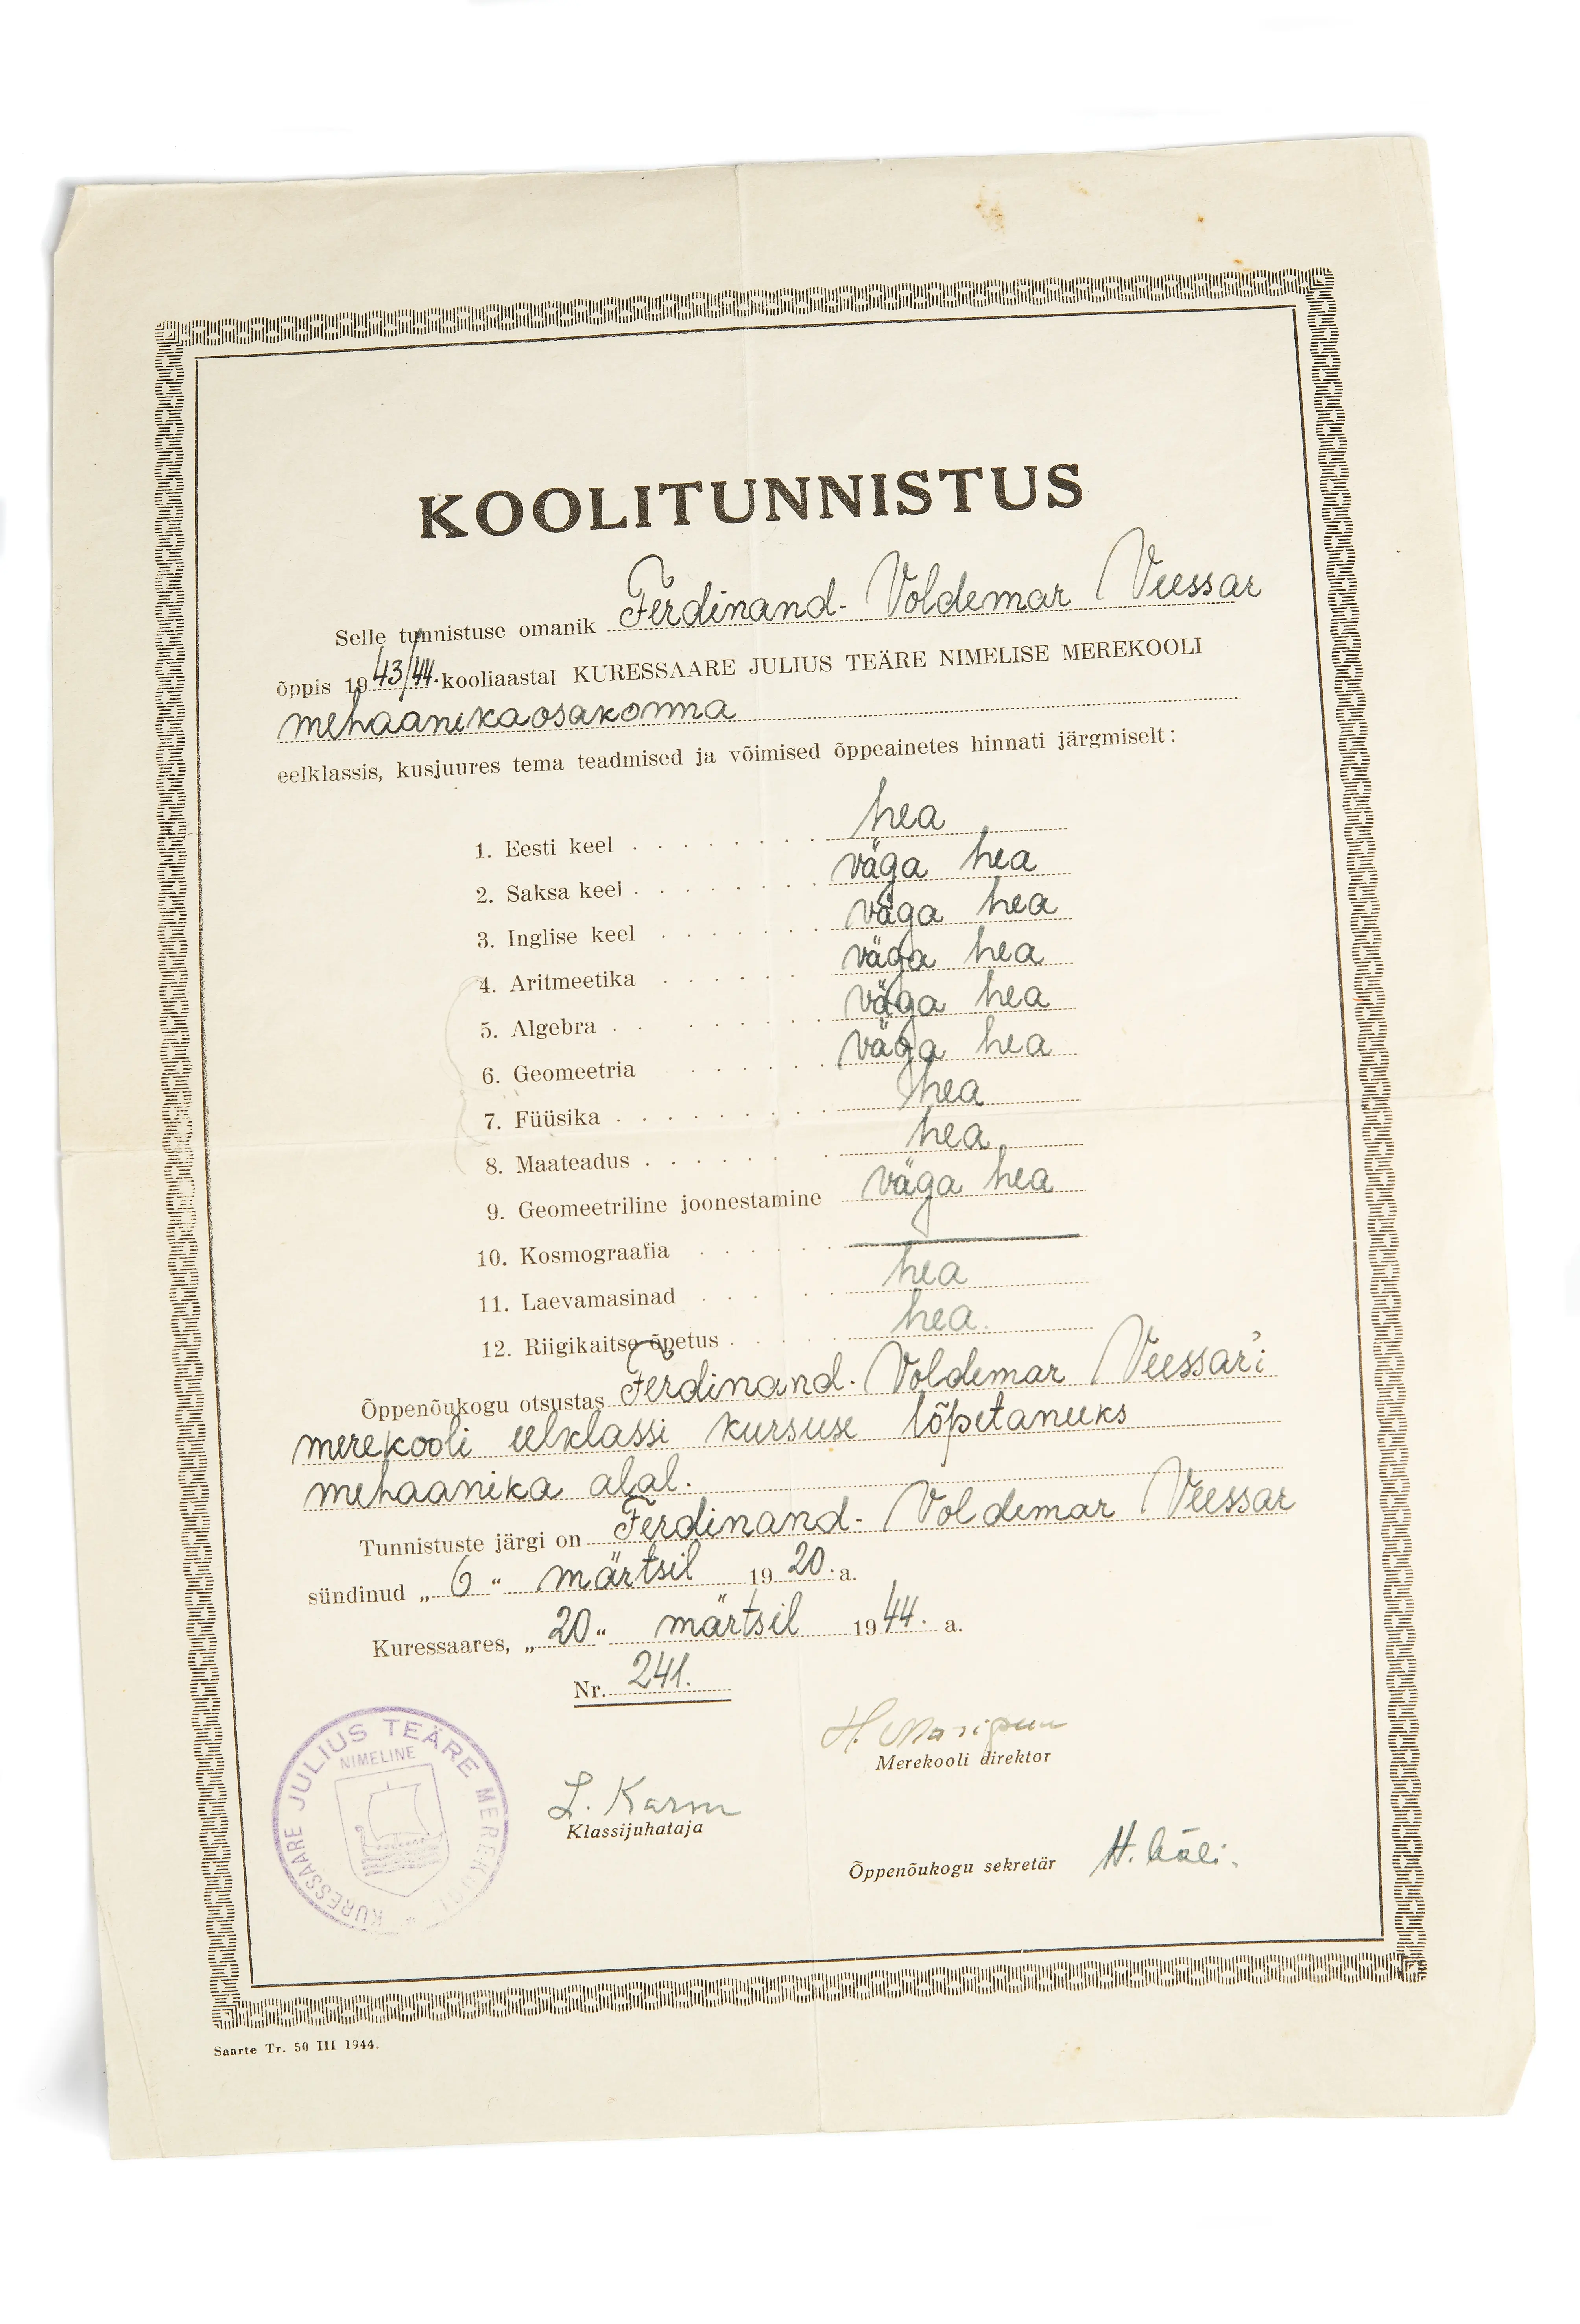 KOOLITUNNISTUS
Selle tunnistuse omanik Ferdinand-Voldemar Veessar
õppis 1943/44. kooliaastal KURESSAARE JULIUS TEÄRE NIMELISE MEREKOOLI
mehaanikaosakonna
eelklassis, kusjuures tema teadmised ja võimised õppeainetes hinnati järgmiselt:
1. Eesti keel hea
2. Saksa keel väga hea
3. Inglise keel väga hea
4. Aritmeetika väga hea
5. Algebra väga hea
6. Geomeetria väga hea
7. Füüsika hea
8. Maateadus hea
9. Geomeetriline joonestamine väga hea
10. Kosmograafia
11. Laevamasinad hea
12. Riigikaitse õpetus hea.
Õppenõukogu otsustas Ferdinand-Voldemar Veessar'i
merekooli eelklassi kursuse lõpetanuks
mehaanika alal.
Tunnistuste järgi on Ferdinand-Voldemar Veessar
sündinud „6“ märtsil 1920. a.
Kuressaares, „20“ märtsil 1944. a.
Nr. 241.
KURESSAARE JULIUS TEÄRE MEREKOOL
NIMELINE
Merekooli direktor
L. Karm
Klassijuhataja
Õppenõukogu sekretär H.
Saarte Tr. 50 III 1944.